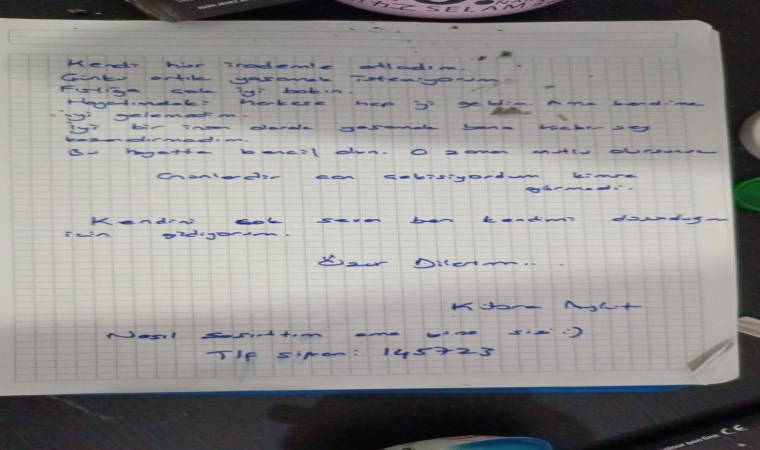 Kendi hür irademle atladım.
Çünkü artık yaşamak istemiyorum.
Fıstığa çok iyi bakın.
Hayatımdaki herkese hep iyi geldim. Ama kendime
iyi gelemedim.
İyi bir insan olarak yaşamak bana hiçbir şey
kazandırmadım.
Bu hayatta bencil olun. O zaman mutlu olursunuz
can çekişiyordum kimse
görmedi.
Kendini çok seven ben kendimi
için gidiyorum.
Özür Dilerim...
Nasıl şaşırttım ama yine sizi :)
Tlf şifrem: 145723